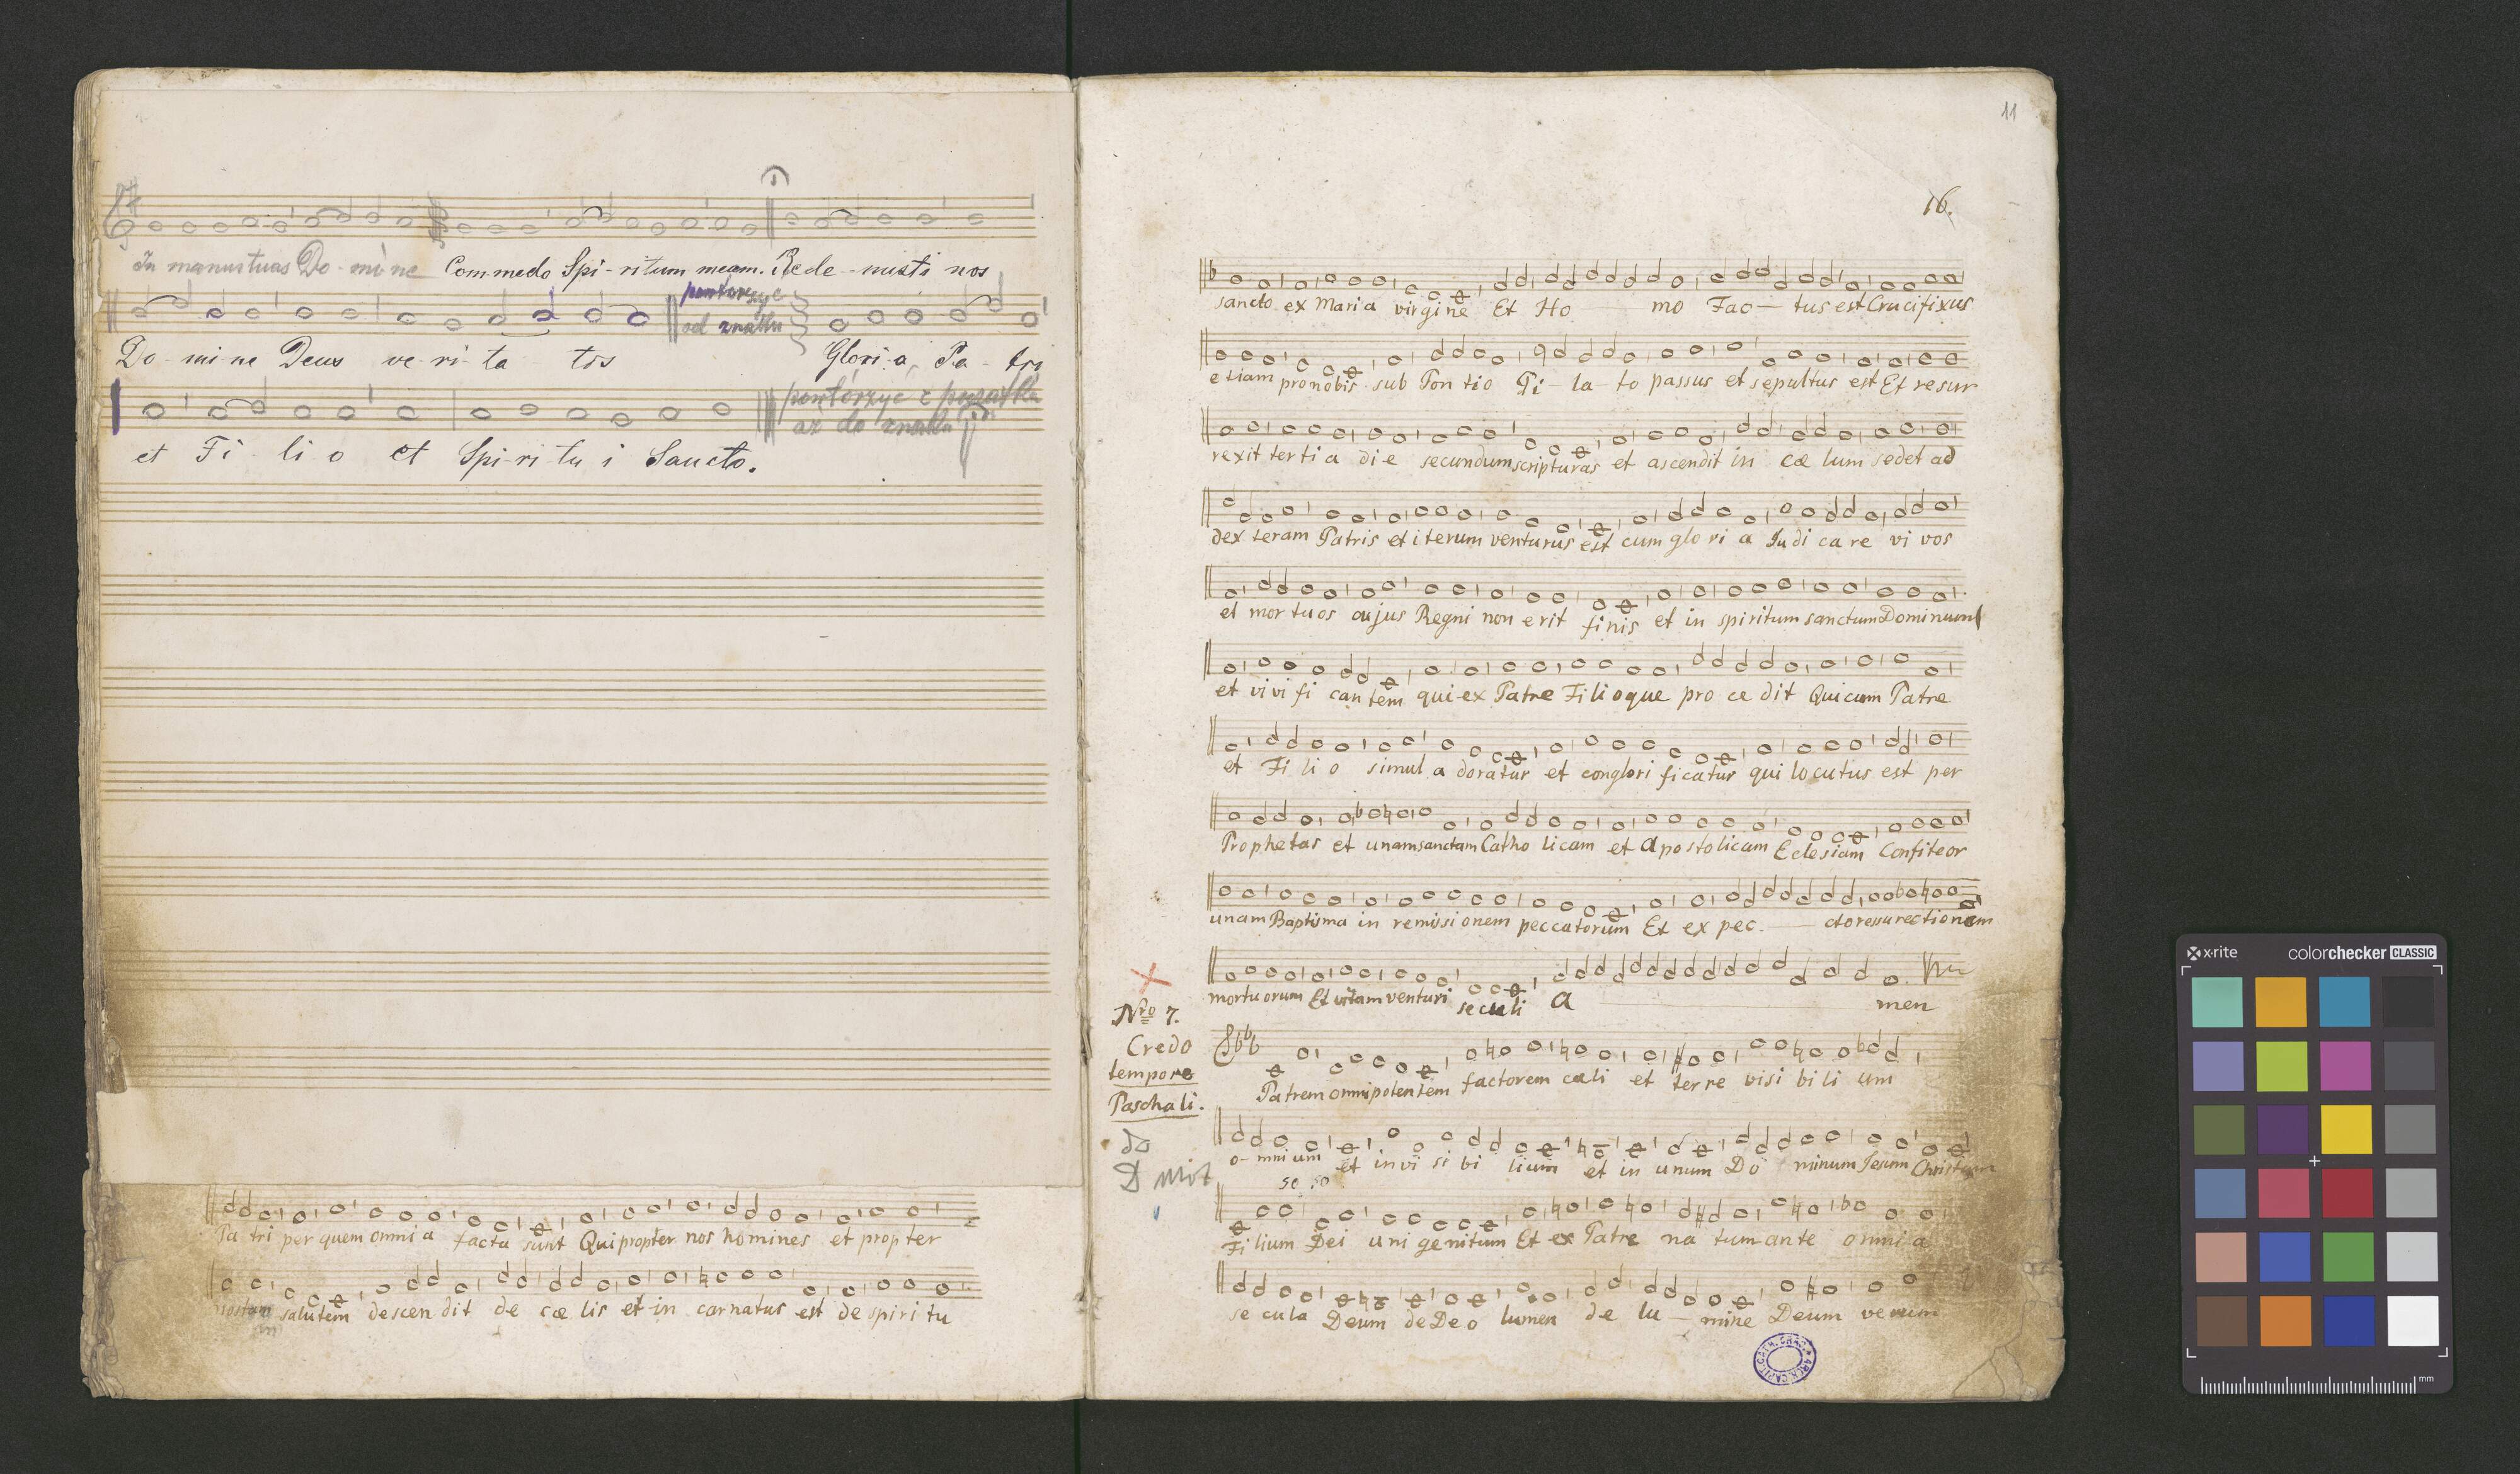 In manus tuas Do-mi-ne Commedo Spi-ritum meam. Rede-misti nos
powtorzyc
od znaku
Do-mi-ne Deus ve-ri-ta-tis Glori-a, Pa-tri
powtórzyć z początku
aż do znaku
et Fi-li-o et Spi-ri-tu i Sancto.
Pa tri per quem omni a facta sunt Qui propter nos homines et propter
salutem descen dit de cæ lis et in carnatus est de spiri tu
11
16.
sancto ex Maria virgine Et Ho mo Fac — tus est Crucifixus
etiam pro nobis sub Pon tio Pi-la-to passus et sepultus est Et resur
rexit tertia die secundum scripturas et ascendit in cæ lum sedet ad
dex teram Patris et iterum venturus est cum glo ri a Judi ca re vi vos
et mor tu os cujus Regni non erit finis et in spiritum sanctum Dominum
et vivi fi can tem qui ex Patre Filioque pro ce dit Qui cum Patre
et Fi li o simul a doratur et conglori ficatur qui locutus est per
Prophetas et unam sanctam Catho licam et Apostolicam Eclesiam Confiteor
unam Baptisma in remissionem peccatorum Et ex pec. — cto ressurectionem
mortuorum Et vitam venturi seculi A men
Nro 7.
Credo
tempore
Paschali.
do
D
Patrem omnipotentem factorem cæli et terre visi bi li um
o-mnium et invi si bi lium et in unum Do minum Jesum Christum
so so
Filium Dei uni genitum Et ex Patre na tum ante omnia
se cula Deum de Deo lumen de lu — mine Deum verum
ARCH. CAPIT. CATH. CRAC.
x-rite
colorchecker CLASSIC
mm